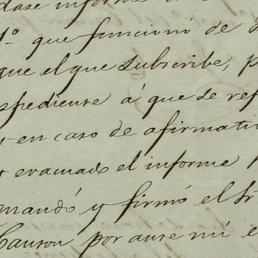 dase informe
1º. que funcioní de
que el que subscribe, p
espediense á que se ref
y en caso de afirmati
y evamado el informe p
mandó y firmó el Sr
Causou por anse mí e